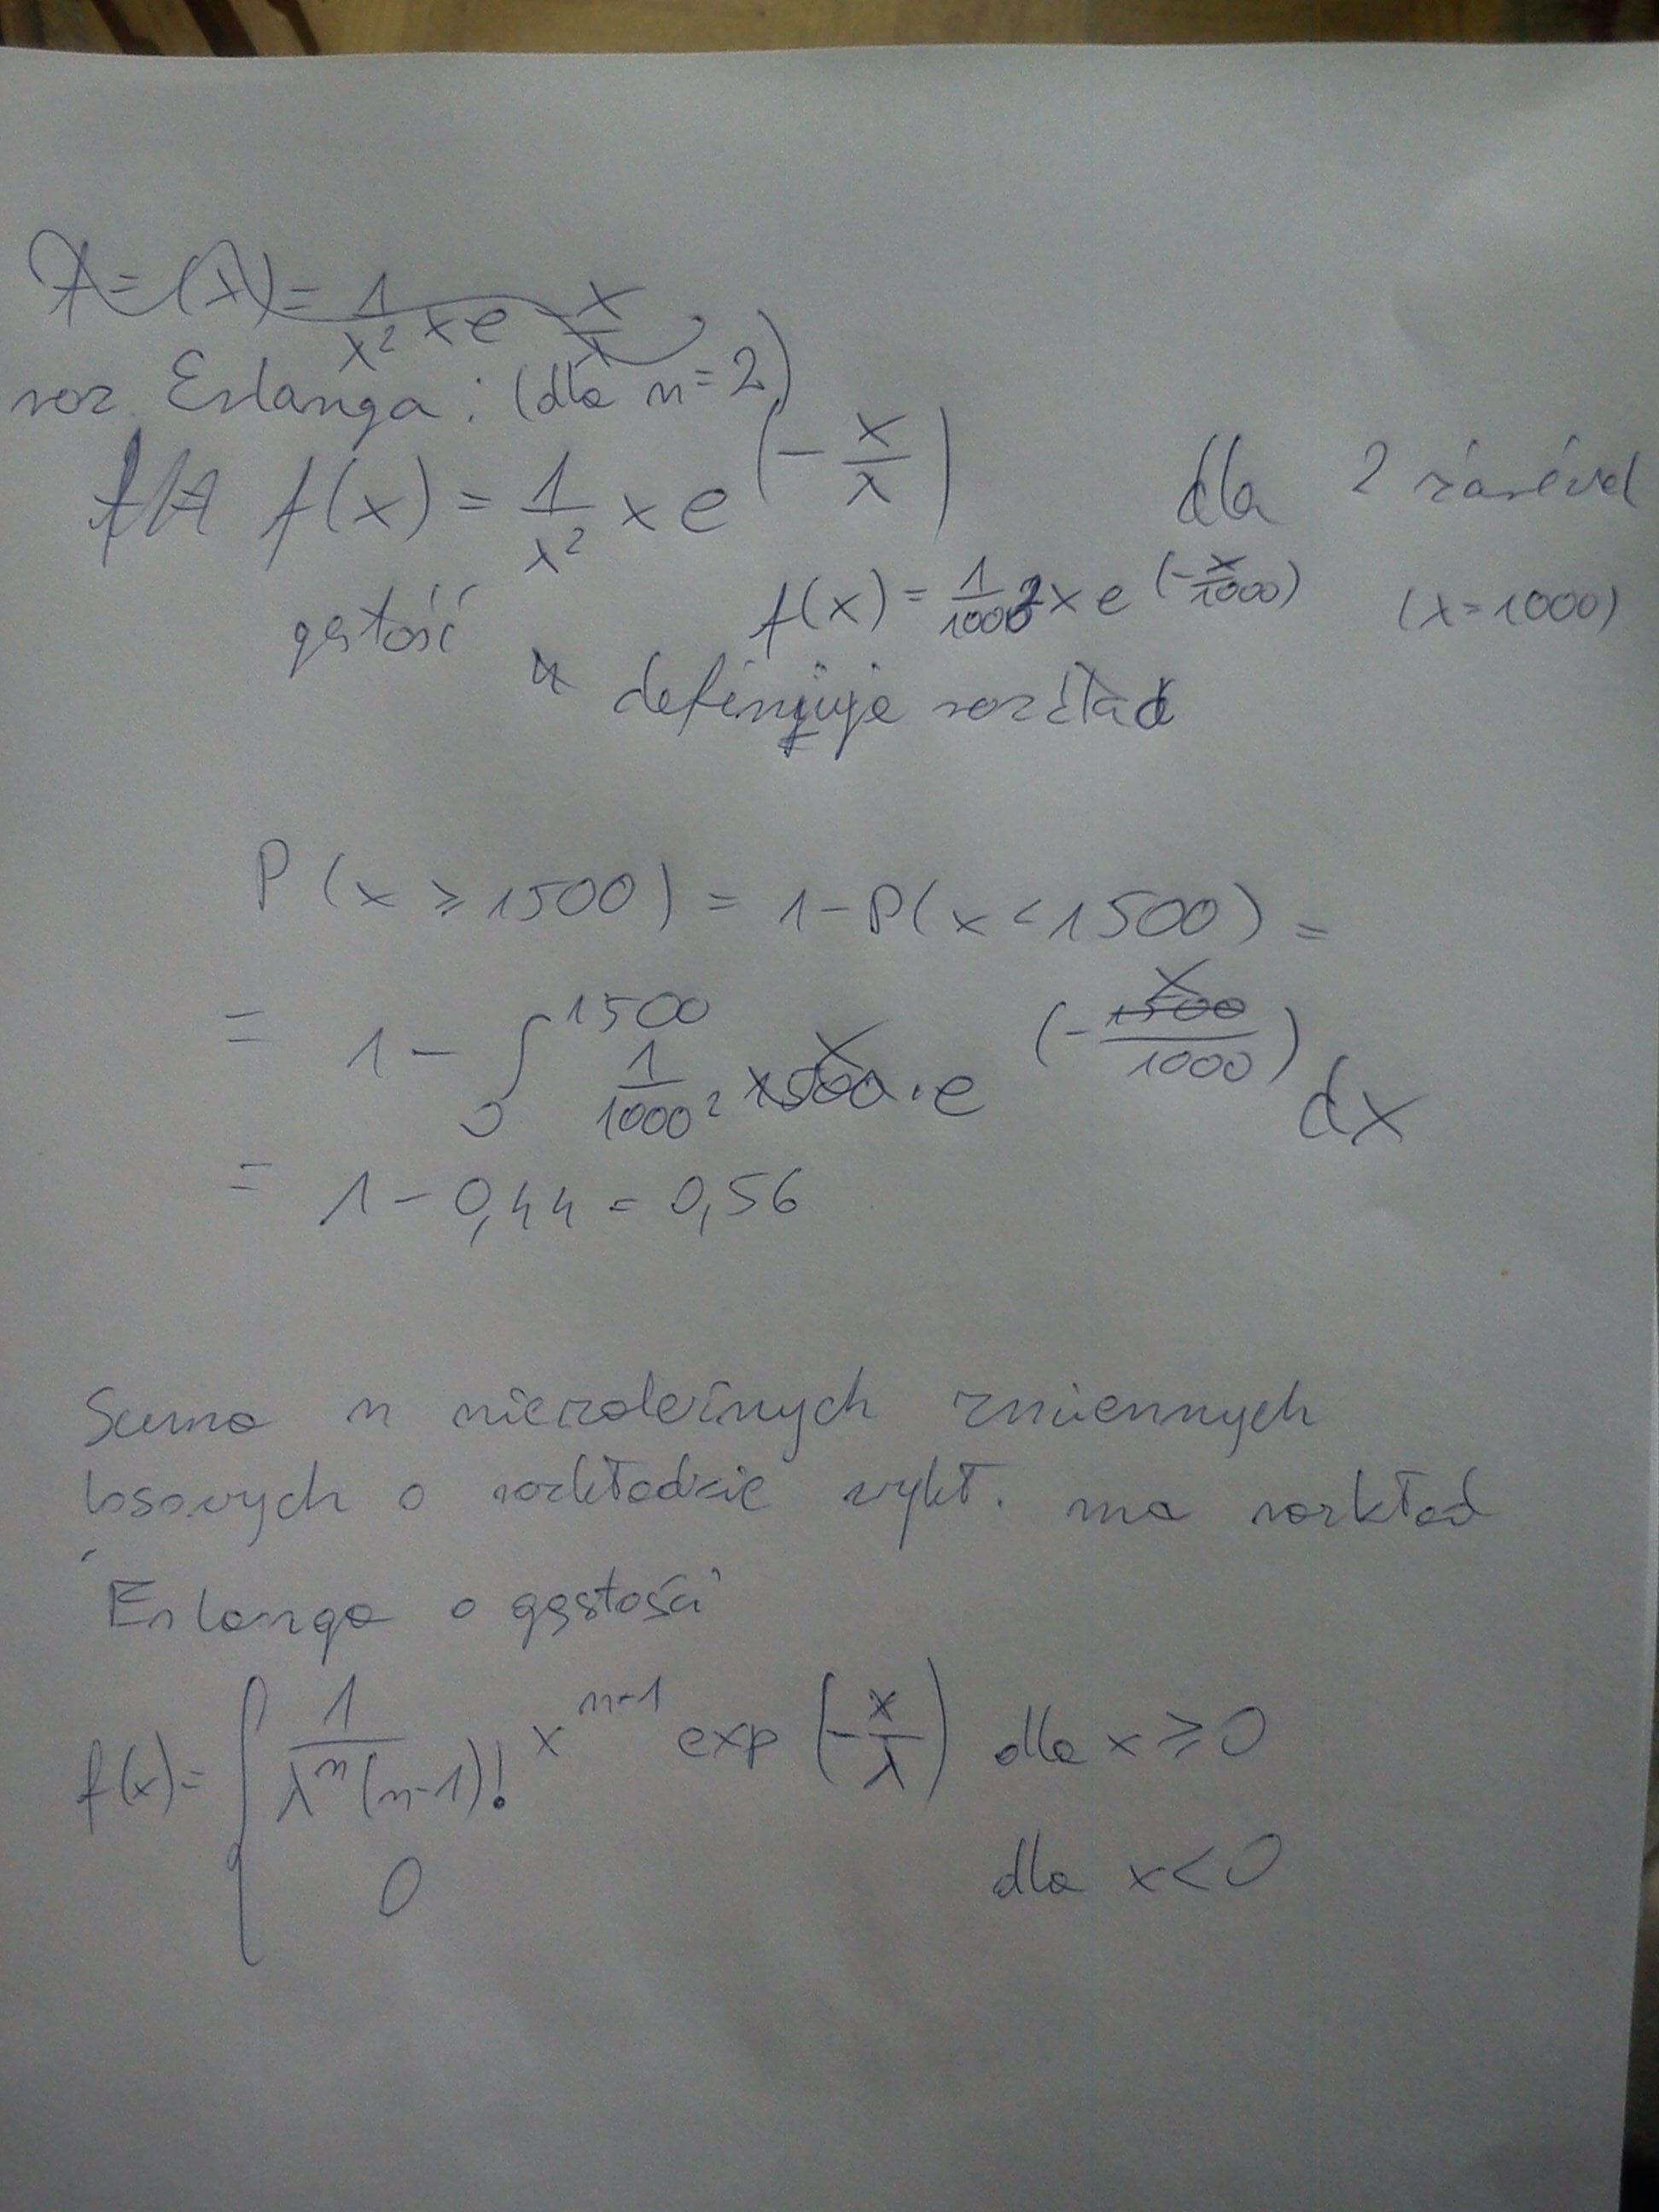 roz. Erlanga: (dla n=2)
f(x) = 1/λ² x e^(-x/λ) dla 2 żarówek
gęstość f(x) = 1/1000² x e^(-x/1000) (λ=1000)
definiuje rozkład
P(x ≥ 1500) = 1 - P(x < 1500) =
= 1 - ∫₀^1500 1/1000² x · e^(-x/1000) dx
= 1 - 0,44 = 0,56
Suma n niezależnych zmiennych
losowych o rozkładzie wykł. ma rozkład
Erlanga o gęstości
f(x) = { 1/(λⁿ(n-1)!) x^(n-1) exp(-x/λ) dla x ≥ 0
0 dla x < 0